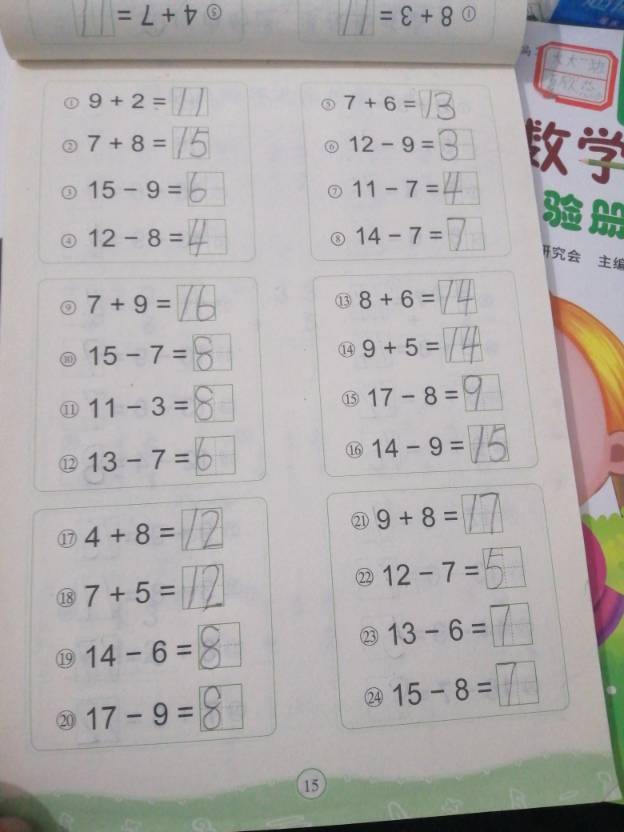 ⑤ 4 + 7 = 11 ① 8 + 3 = 11
① 9 + 2 = 11
② 7 + 8 = 15
③ 15 - 9 = 6
④ 12 - 8 = 4
⑤ 7 + 6 = 13
⑥ 12 - 9 = 3
⑦ 11 - 7 = 4
⑧ 14 - 7 = 7
⑨ 7 + 9 = 16
⑩ 15 - 7 = 8
⑪ 11 - 3 = 8
⑫ 13 - 7 = 6
⑬ 8 + 6 = 14
⑭ 9 + 5 = 14
⑮ 17 - 8 = 9
⑯ 14 - 9 = 15
⑰ 4 + 8 = 12
⑱ 7 + 5 = 12
⑲ 14 - 6 = 8
⑳ 17 - 9 = 8
㉑ 9 + 8 = 17
㉒ 12 - 7 = 5
㉓ 13 - 6 = 7
㉔ 15 - 8 = 7
15
数学
验册
研究会 主编